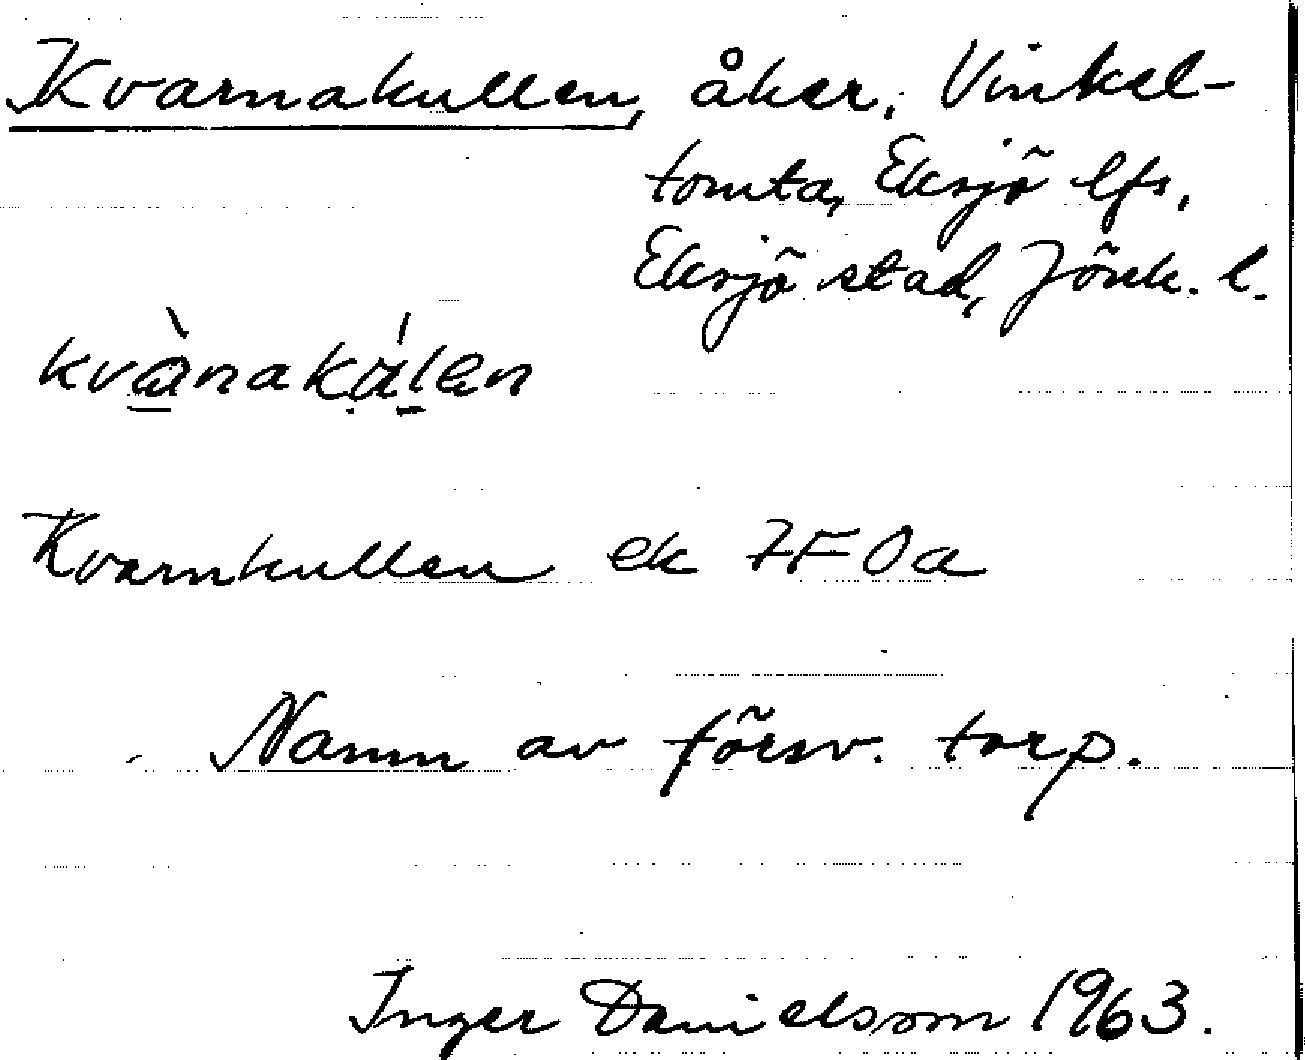 Kvarnakullen, åker, Vinkel-
tomta, Eksjö lfs,
Eksjö stad, Jönk. l.
kvànakúlen
Kvarnkullen ek 7F0a
Namn av försv. torp.
Inger Danielsson 1963.